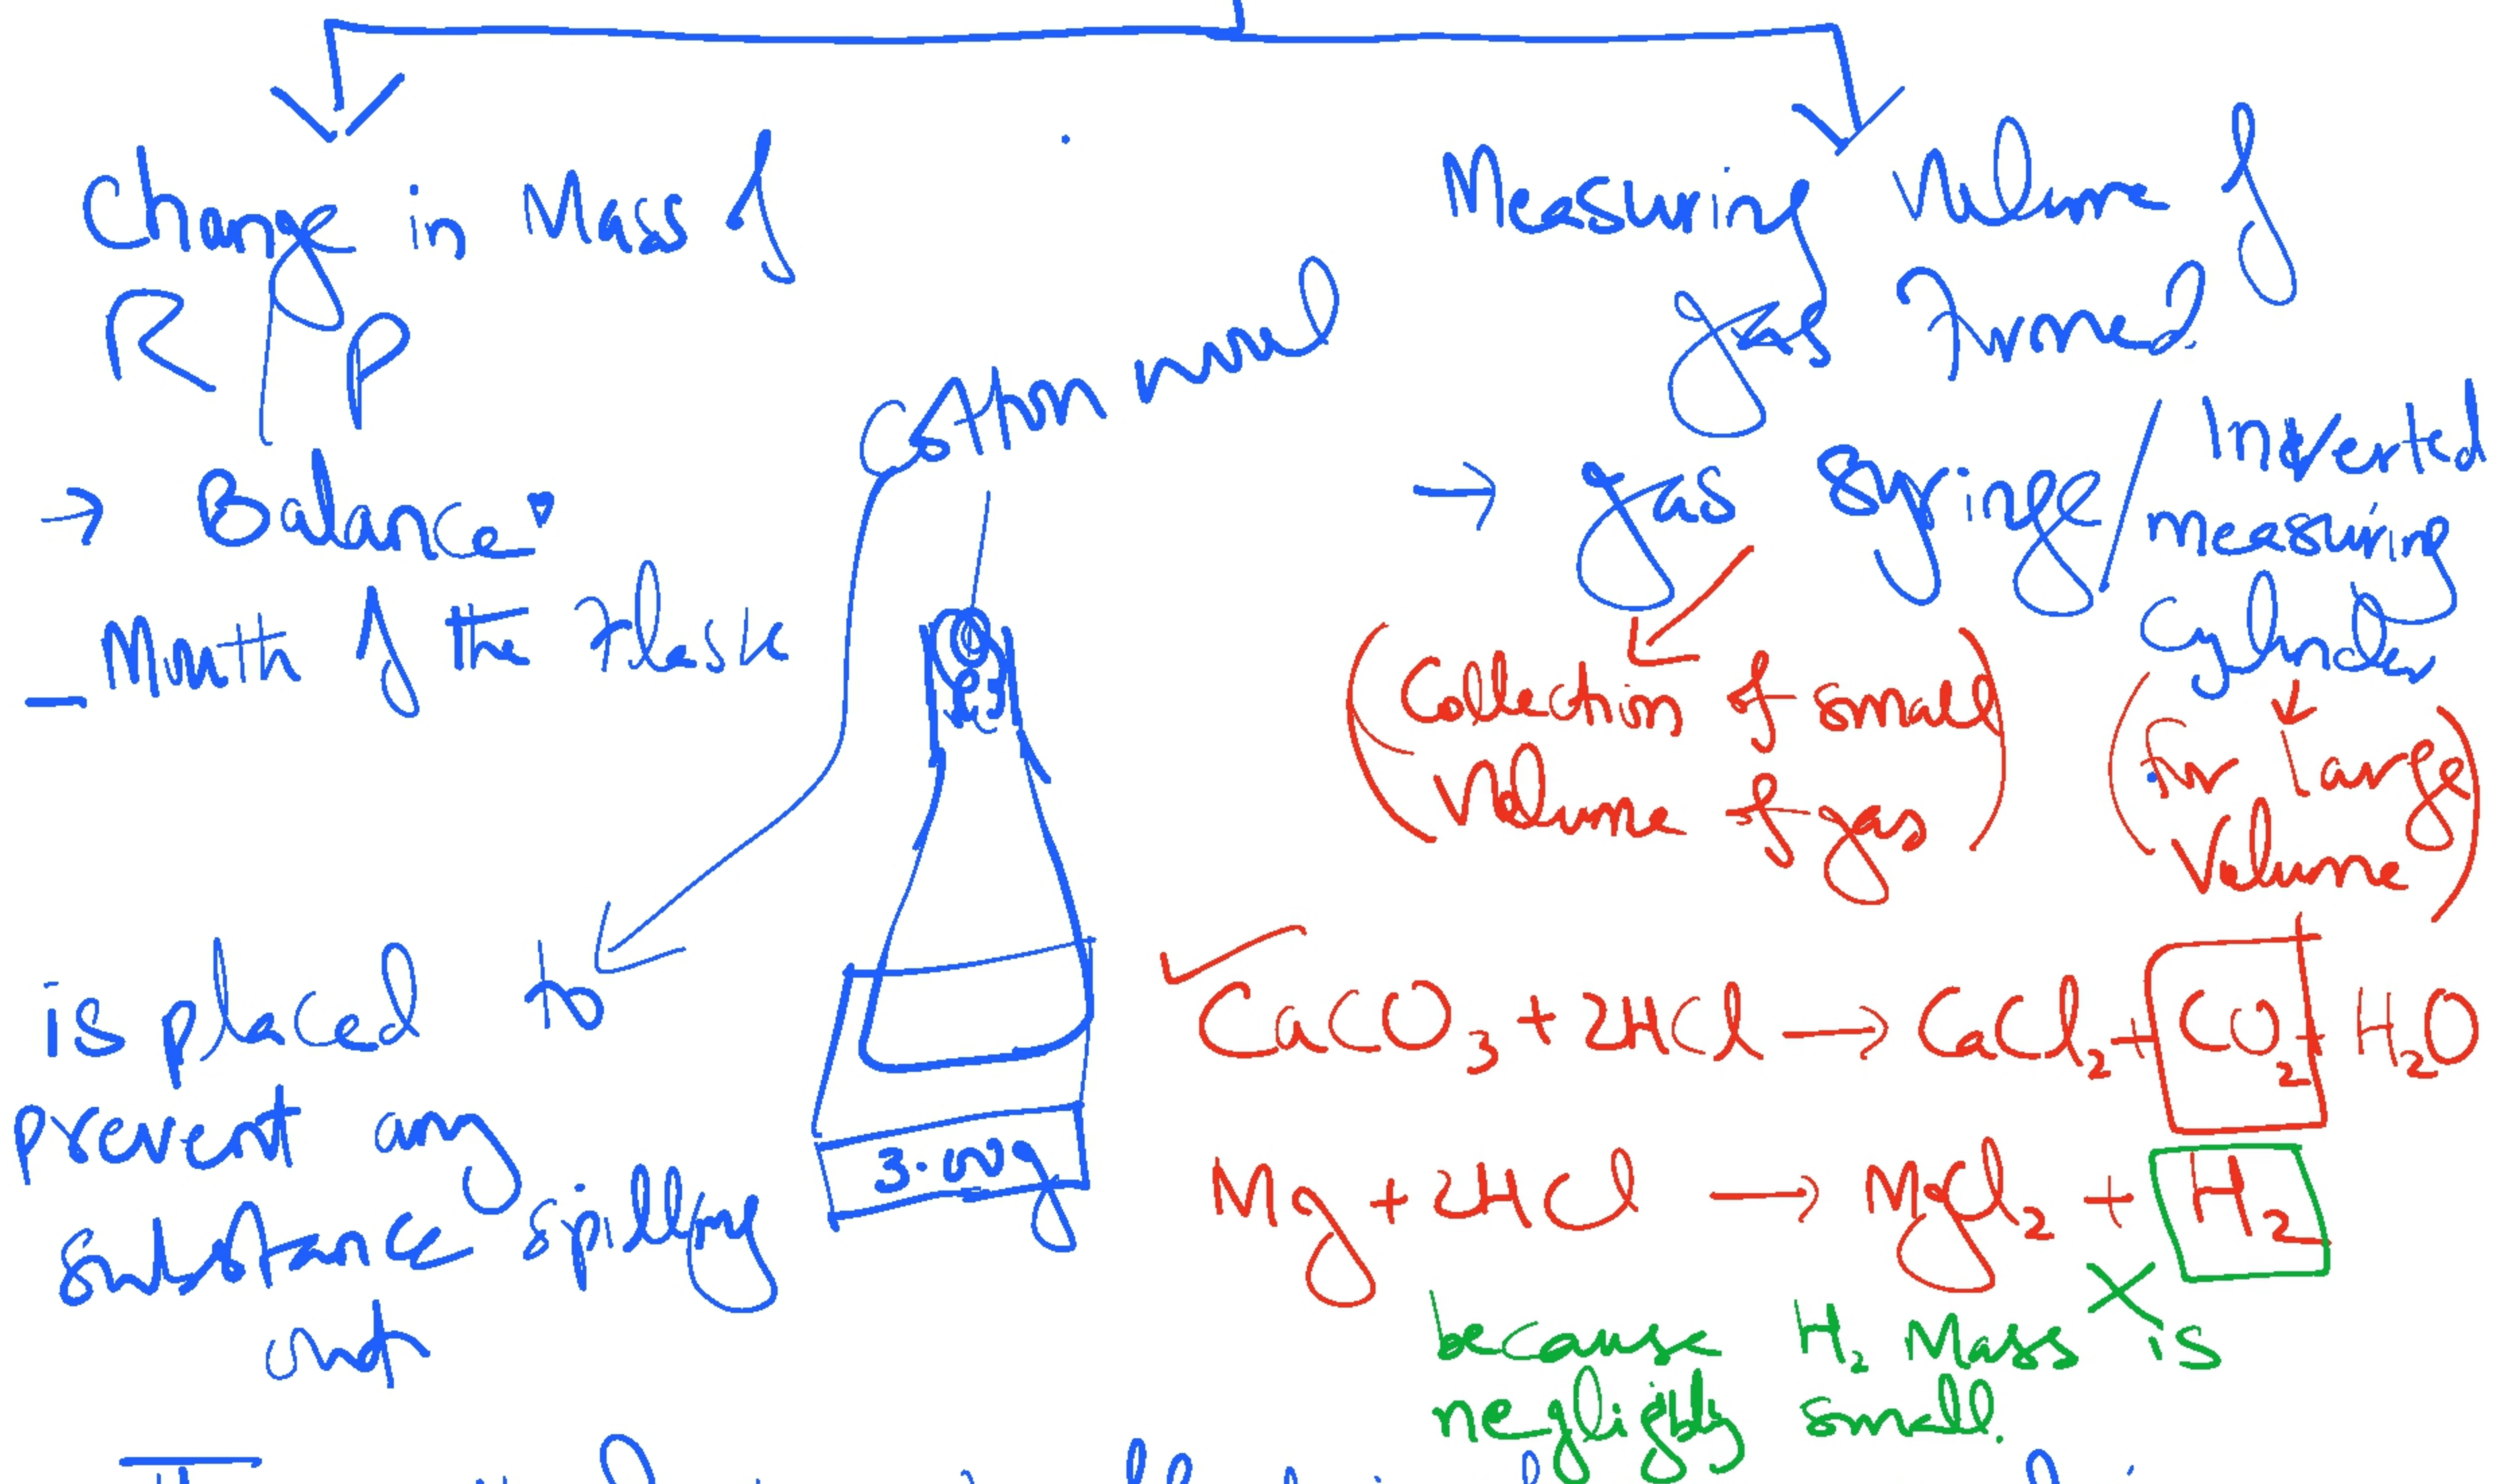 Change in Mass of
R / P
→ Balance
- Mouth of the flask
Cotton wool
is placed to
prevent any
substance spilling
out
3.00g
Measuring Volume of
gas formed
→ gas syringe / Inverted
measuring
Cylinder
(Collection of small
Volume of gas)
(for Large
Volume)
CaCO₃ + 2HCl → CaCl₂ + CO₂ + H₂O
Mg + 2HCl → MgCl₂ + H₂
because H₂ Mass is
negligibly small.